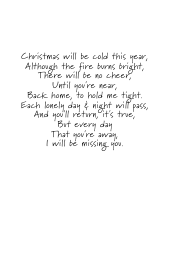 Christmas will be cold this year,
Although the fire burns bright,
There will be no cheer,
Until you're near,
Back home, to hold me tight.
Each lonely day & night will pass,
And you'll return, it's true,
But every day
That you're away,
I will be missing you.